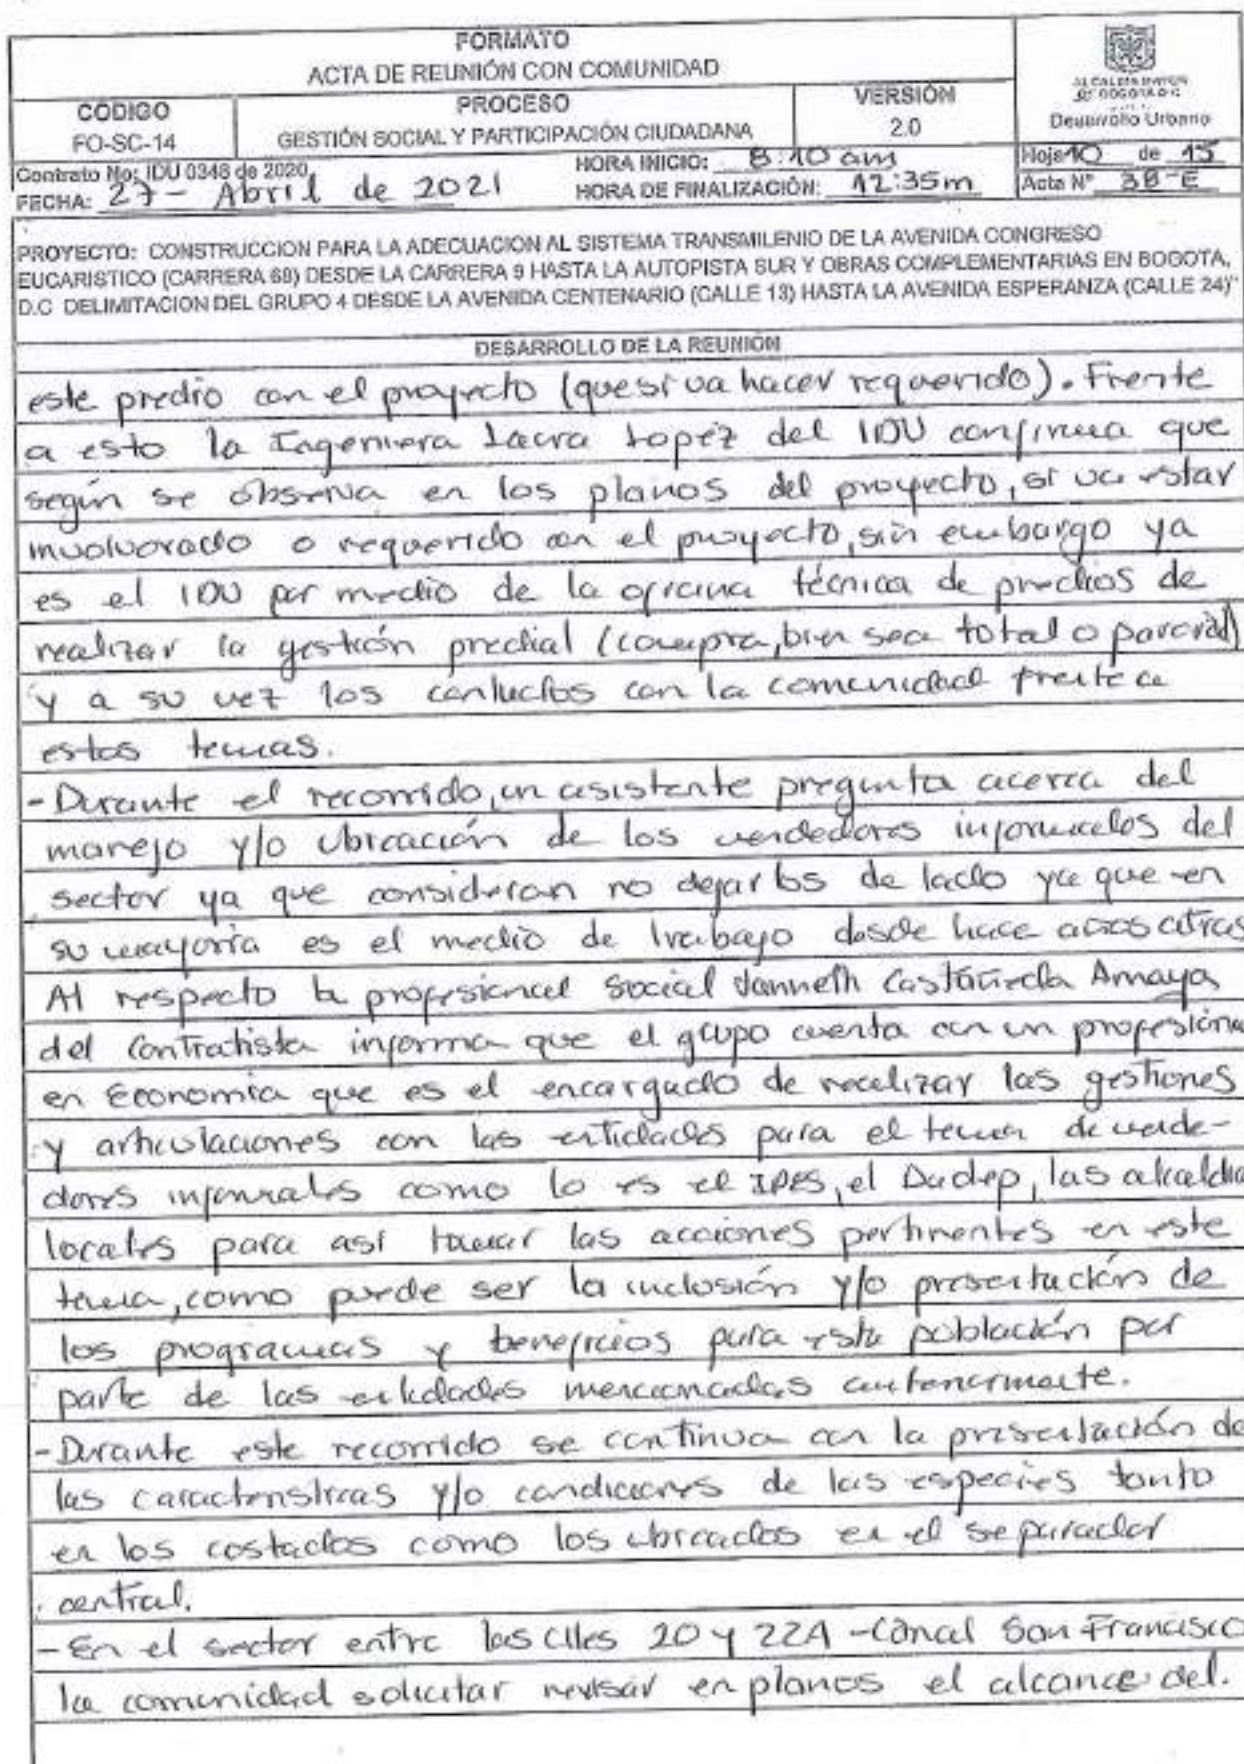 FORMATO
ACTA DE REUNIÓN CON COMUNIDAD
CÓDIGO
FO-SC-14
PROCESO
GESTIÓN SOCIAL Y PARTICIPACIÓN CIUDADANA
VERSIÓN
2.0
ALCALDÍA MAYOR
DE BOGOTÁ D.C.
Desarrollo Urbano
Contrato No: IDU 0346 de 2020
FECHA: 27 - Abril de 2021
HORA INICIO: 8:10 am
HORA DE FINALIZACIÓN: 12:35m
Hoja 10 de 15
Acta N° 38-E
PROYECTO: CONSTRUCCION PARA LA ADECUACION AL SISTEMA TRANSMILENIO DE LA AVENIDA CONGRESO
EUCARISTICO (CARRERA 68) DESDE LA CARRERA 9 HASTA LA AUTOPISTA SUR Y OBRAS COMPLEMENTARIAS EN BOGOTA,
D.C DELIMITACION DEL GRUPO 4 DESDE LA AVENIDA CENTENARIO (CALLE 13) HASTA LA AVENIDA ESPERANZA (CALLE 24)"
DESARROLLO DE LA REUNIÓN
este predio con el proyecto (que si va hacer requerido). Frente
a esto la Ingeniera Laura Lopez del IDU confirma que
según se observa en los planos del proyecto, si va estar
involucrado o requerido con el proyecto, sin embargo ya
es el IDU por medio de la oficina técnica de predios de
realizar la gestión predial (compra, bien sea total o parcial)
y a su vez los contactos con la comunidad frente a
estos temas.
- Durante el recorrido, un asistente pregunta acerca del
manejo y/o ubicación de los vendedores informales del
sector ya que consideran no dejarlos de lado ya que en
su mayoria es el medio de trabajo desde hace años atras
Al respecto la profesional social Janneth Castañeda Amaya
del Contratista informa que el grupo cuenta con un profesiona
en Economía que es el encargado de realizar las gestiones
y articulaciones con las entidades para el tema de vende-
dores informales como lo es el IPES, el Dadep, las alcaldia
locales para así tomar las acciones pertinentes en este
tema, como puede ser la inclusión y/o presentación de
los programas y beneficios para esta población por
parte de las entidades mencionadas anteriormente.
- Durante este recorrido se continua con la presentación de
las caracteristicas y/o condiciones de las especies tanto
en los costados como los ubicados en el separador
central.
- En el sector entre las Clles 20 y 22A - Canal San Francisco
la comunidad solicitar revisar en planos el alcance del.